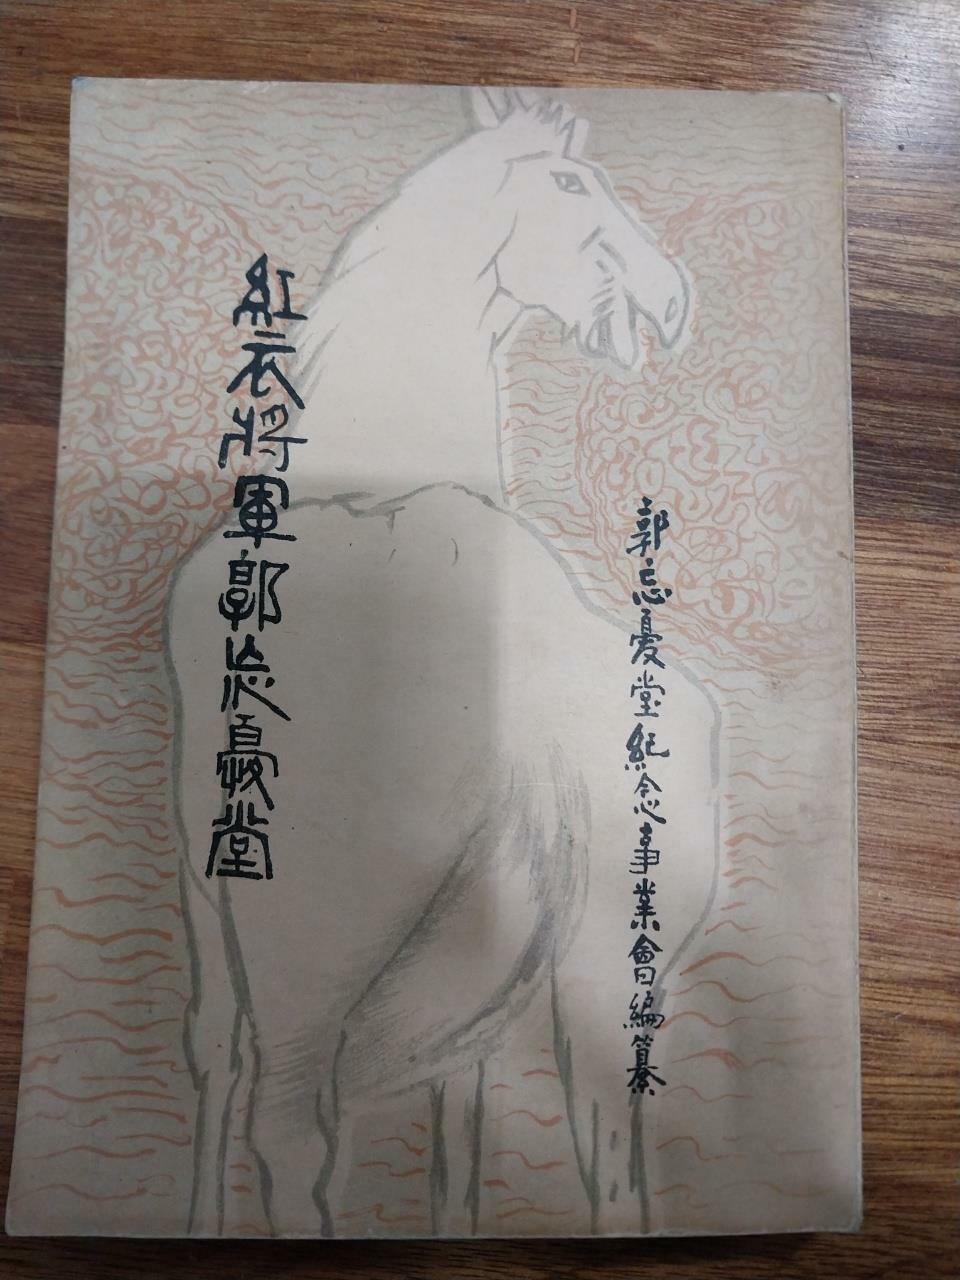 郭忘憂堂紀念事業會編纂
紅衣將軍郭忘憂堂